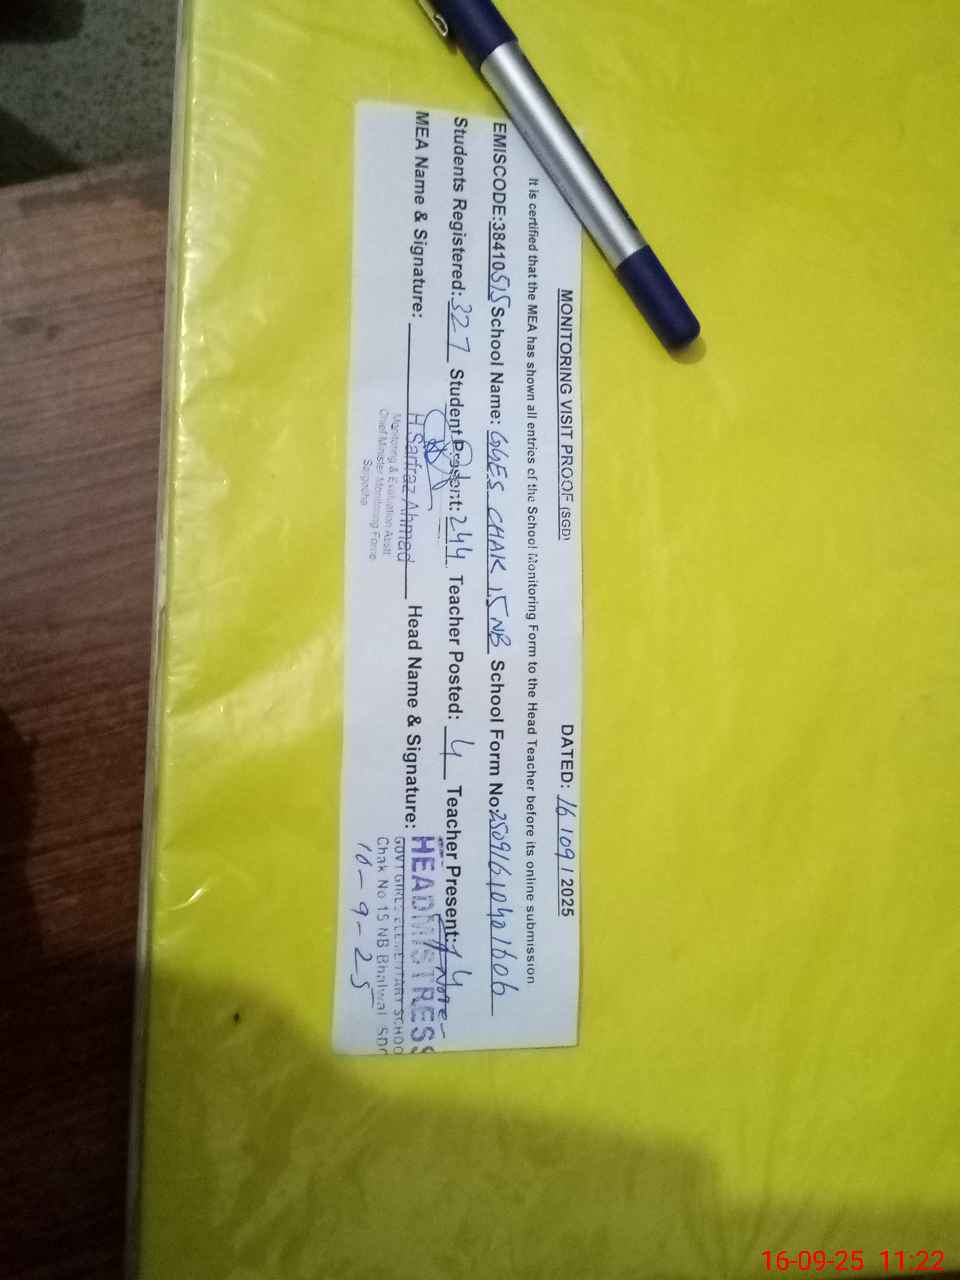 MONITORING VISIT PROOF (SGD) DATED: 16 / 09 / 2025
It is certified that the MEA has shown all entries of the School Monitoring Form to the Head Teacher before its online submission
EMISCODE:38410515 School Name: GGES CHAK 15 NB School Form No:
Students Registered: 327 Student Present: 244 Teacher Posted: 4 Teacher Present: 4
MEA Name & Signature: H.Sarfraz Ahmad Head Name & Signature: HEADMISTRESS
Monitoring & Evaluation Asstt
Chief Minister Monitoring Force
Sargodha
GOVT GIRLS ELEMENTARY SCHOO
Chak No 15 NB Bhalwal
16-9-25
16-09-25 11:22